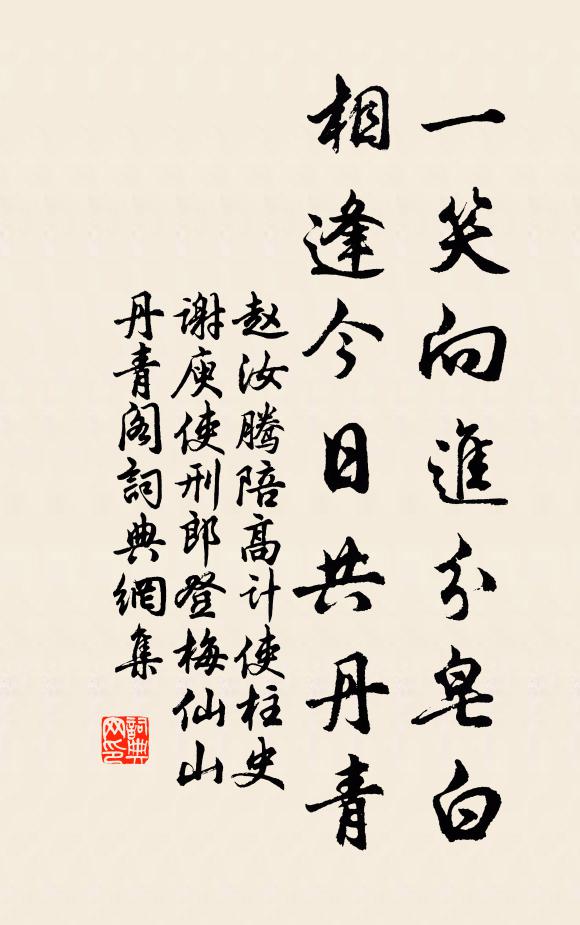 一笑向進分皂白
相逢今日共丹青
赵汝腾陪高计使柱史
谢庾使刑郎登梅仙山
丹青阁詞典網集
詞典
网印